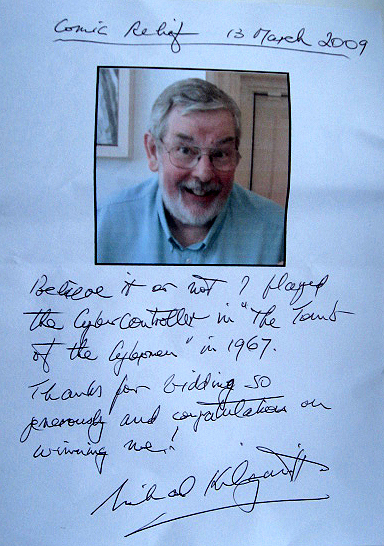 Comic Relief 13 March 2009
Believe it or not I played
the CyberController in "The Tomb
of the Cybermen" in 1967.
Thanks for bidding so
generously and congratulations on
winning me!
Michael Kilgarriff